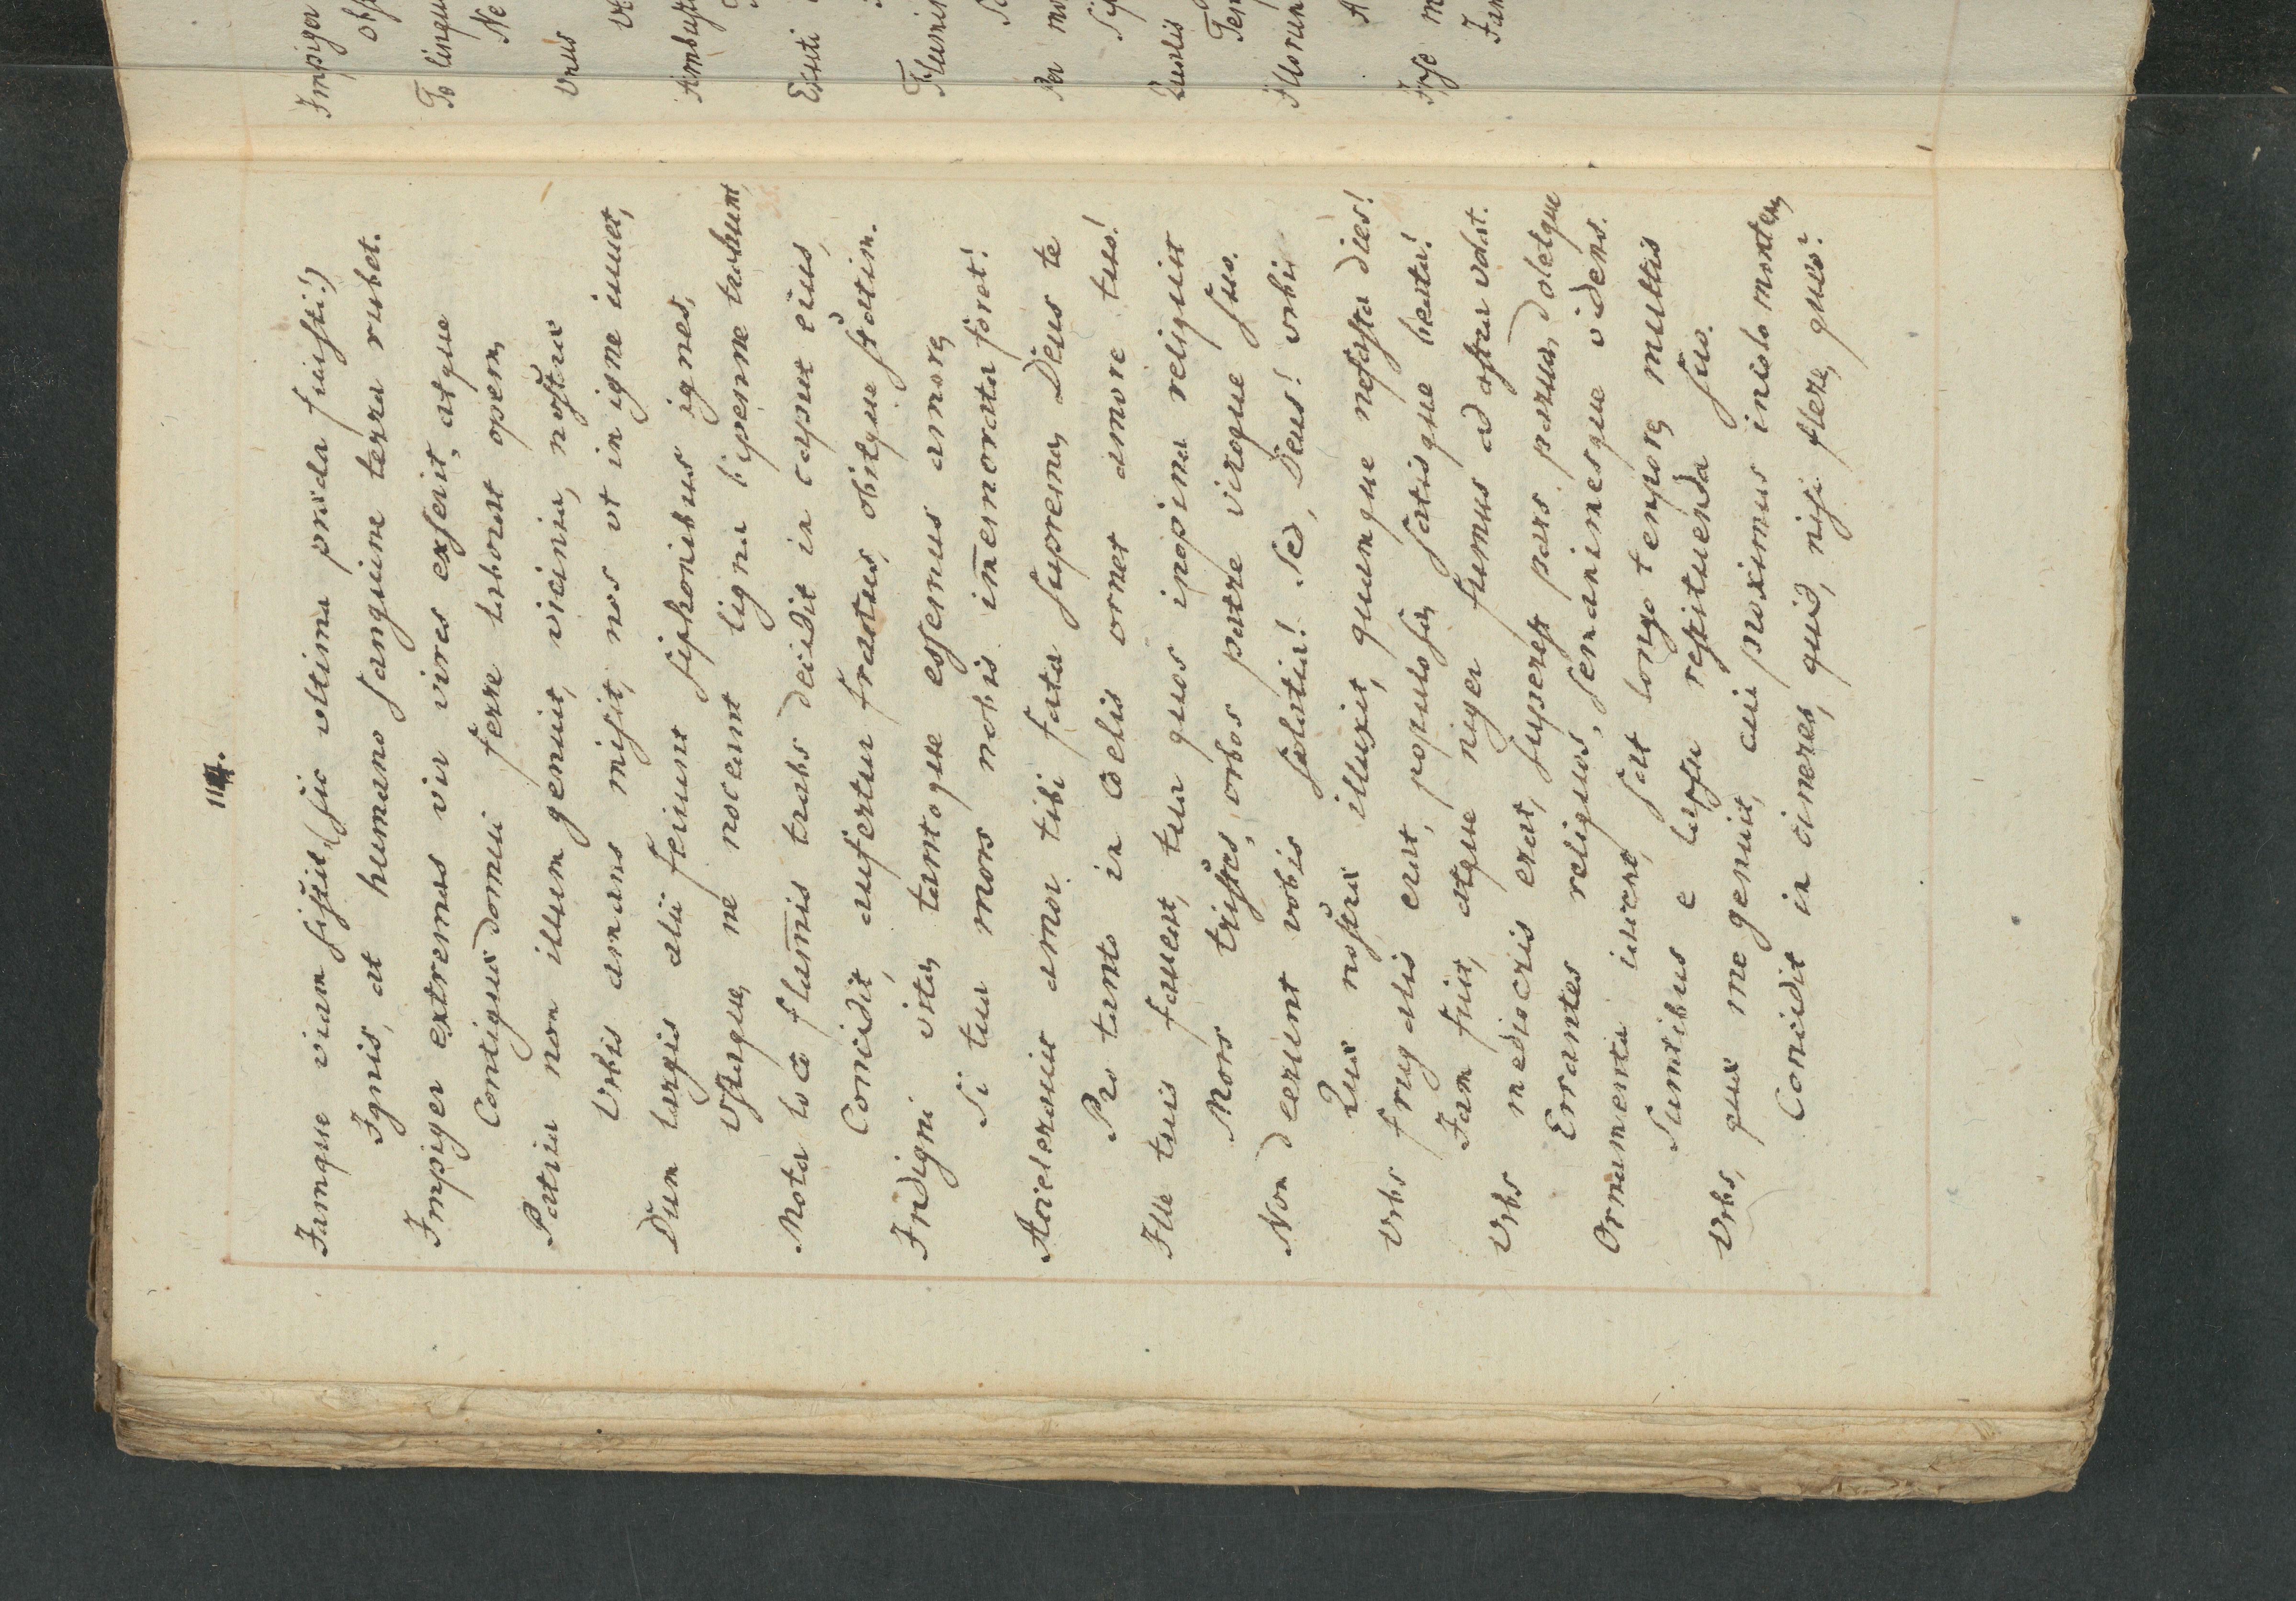 114.
Iamque viam sistit (sic vltima præda fuisti!)
Ignis, at humano sanguine terra rubet.
Impiger extremas vir vires exserit, atque
Contiguæ domui ferre laborat opem,
Patria non illum genuit, vicinia, nostræ
Vrbis amans misit, nos vt in igne iuuet,
Dum largis alii feriunt siphonibus ignes,
Vstaque, ne noceant ligna bipenne trahunt,
Mota loco flam̅is trabs decidit in caput eius,
Concidit, aufertur fractus, obitque statim.
Indigni vita, tantoque essemus amore,
Si tua mors nobis im̅emorata foret!
Accelerauit amor tibi fata suprema, Deus te
Pro tanto in cœlis ornet amore tuo!
Ille tuis faueat, tua quos inopina reliquit
Mors tristes, orbos patre viroque suo.
Non deerunt vobis solatia! Sed, Deus! vrbi
Quæ nostræ illuxit, quamque nefasta dies!
Vrbs frugalis erat, populosa, satisque beata!
Iam fuit, atque niger fumus ad astra volat.
Vrbs mediocris erat, superest pars parua, doletque
Errantes reliquos, semanimesque videns.
Ornamenta iacent, sat longo tempore multis
Sumtibus e lapsu restituenda suo.
Vrbs, quæ me genuit, cui proximus incolo montem,
Concidit in cineres, quid, nisi flere, queo?
Impiger
To
Ne
Vnus
Exuti
Qualis